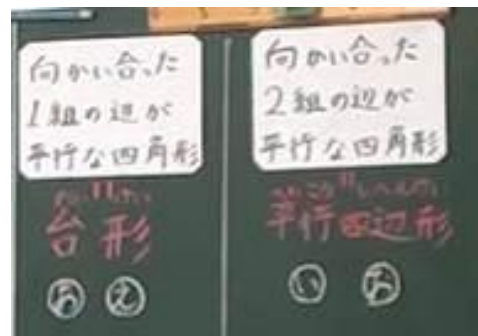 向かい合った
1組の辺が
平行な四角形
だいけい
台形
え
向かい合った
2組の辺が
平行な四角形
へいこうしへんけい
平行四辺形
い